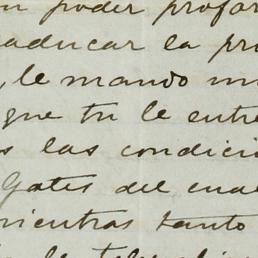 poder profa
aducar la pr
, le mando un
que tu le entre
s las condici
Gates del cual
mientras tanto